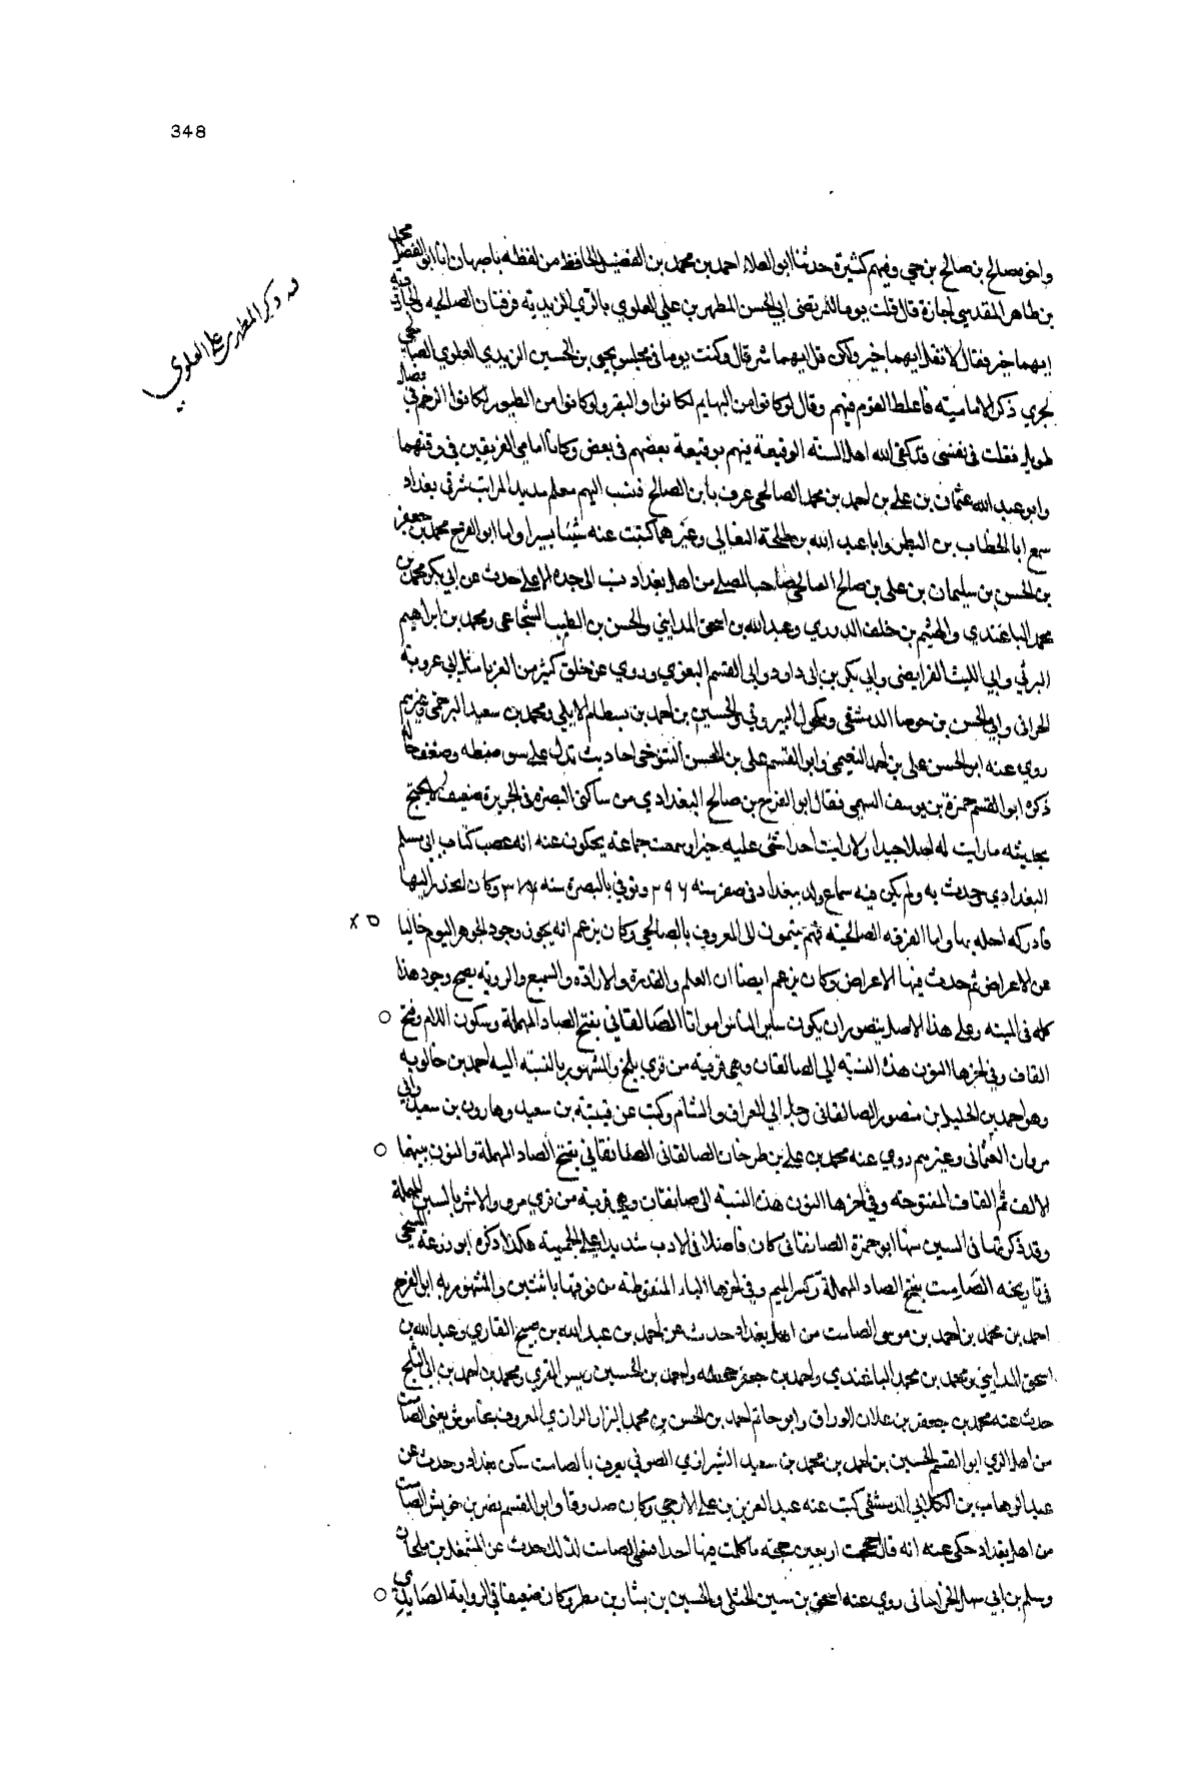 348
فيه ذكر المطهر بن علي العلوي
واخوه صالح بن صالح بن حي وفيهم كثيرة حدثنا ابو العلاء احمد بن محمد بن الفضل الحافظ من لفظه باصبهان انا ابو الفضل محمد
بن طاهر المقدسي اجازة قال قلت يوما للمرتضى ابي الحسن المطهر بن علي العلوي بالري الزيدية فرقتان الصالحية والجارودية
ايهما خير فقال لا تقل ايهما خير ولكن قل ايهما شر قال وكنت يوما في مجلس يحيى بن الحسين الزيدي العلوي الصالحي
فجري ذكر الامامية فاغلظ القوم فيهم وقال لو كانوا من البهايم لكانوا البقر ولو كانوا من الطيور لكانوا الرخم في فصل
طويل فقلت في نفسي قد كفى الله اهل السنة الوقيعة فيهم بوقيعة بعضهم في بعض وكانا امامي الفريقين في وقتهما
وابو عبد الله عثمان بن علي بن احمد بن محمد الصالحي عرف بابن الصالح فنسب اليهم معلم سديد المراتب شرقي بغداد
سمع ابا الخطاب بن البطر وابا عبد الله بن طلحة النعالي وغيرهما كتبت عنه شيئا يسيرا واما ابو الفرج محمد بن جعفر
بن الحسن بن سليمان بن علي بن صالح الصالحي صاحب المصلى من اهل بغداد نسب الى جده الاعلى حدث عن ابي بكر محمد بن
محمد الباغندي والهيثم بن خلف الدوري وعبد الله بن اسحق المدايني والحسن بن الطيب الشجاعي ومحمد بن ابراهيم
البرتي وابي الليث الفرايضي وابي بكر بن ابي داود وابي القسم البغوي وروي عن خلق كثير من الغربا مثل ابي عروبة
الحراني وابي الحسن بن جوصا الدمشقي ومكحول البيروتي والحسين بن احمد بن بسطام الايلي ومحمد بن سعيد الترخمي وغيرهم
روي عنه ابو الحسن علي بن احمد النعيمي وابو القسم علي بن المحسن التنوخي احاديث تدل على سو ضبطه وضعف حاله
ذكره ابو القسم حمزة بن يوسف السهمي فقال ابو الفرج بن صالح البغدادي من ساكني البصرة في الجزيرة ضعيف لا يحتج
بحديثه ما رايت له اصلا جيدا ولا رايت احدا اثنى عليه خيرا وسمعت جماعة يحكون عنه انه غصب كتاب ابي مسلم
البغدادي حدث به ولم يكن فيه سماع ولد ببغداد في صفر سنه ٢٩٦ وتوفي بالبصرة سنه وكان انحدر اليها
فادركه اجله بها واما الفرقه الصالحية فهم ينتمون الى المعروف بالصالحي وكان يزعم انه يجوز وجود الجوهر اليوم خاليا
عن الاعراض ثم حدث فيها الاعراض وكان يزعم ايضا ان العلم والقدرة والارادة والسمع والرويه يصح وجود هذا
كله في الميته وعلى هذا الاصل يتصور ان يكون ساير الناس امواتا الصالقاني بفتح الصاد المهملة وسكون اللام وفتح
القاف وفي اخرها النون هذه النسبة الى الصالقان وهي قرية من قري بلخ والمشهور بالنسبة اليه احمد بن خالويه
وهو احمد بن الخليل بن منصور الصالقاني رحل الي العراق والشام وكتب عن قتيبة بن سعيد وهارون بن سعيد وابي
مروان العثماني وغيرهم روي عنه محمد بن علي بن طرخان الصالقاني الصانقاني بفتح الصاد المهملة والنون بينهما
الالف ثم القاف المفتوحة وفي اخرها النون هذه النسبة الى صانقان وهي قرية من قري مرو والاشهر بالسين المهملة
وقد ذكرتها في السين منها ابو حمزة الصانقاني كان فاضلا في الادب شديدا على الجهمية هكذا ذكره ابو زرعة السنجي
في تاريخه الصامت بفتح الصاد المهملة وكسر الميم وفي اخرها التاء المنقوطة من فوقها باثنتين والمشهور به ابو الفرج
احمد بن محمد بن احمد بن موسى الصامت من اهل بغداد حدث عن احمد بن عبد الله بن صبيح القاري وعبد الله بن
اسحق المدايني ومحمد بن محمد الباغندي واحمد بن جعفر جحظه واحمد بن الحسين ريس القري ومحمد بن احمد بن ابي الثلج
حدث عنه محمد بن جعفر بن علان الوراق وابو حاتم احمد بن الحسن بن محمد البزار الرازي المعروف بخاموش يعني الصامت
من اهل الري ابو القسم الحسين بن احمد بن محمد بن سعيد الشيرازي الصوفي يعرف بالصامت سكن بغداد وحدث عن
عبد الوهاب بن الكلابي الدمشقي كتب عنه عبد العزيز بن علي الازجي وكان صدوقا وابو القسم نصر بن حريش الصامت
من اهل بغداد حكي عنه انه قال حججت اربعين حجة ما كلمت فيها احدا فسمي الصامت لذلك حدث عن المشمعل بن ملحان
وسلم بن ابي سهل الخراساني روي عنه اسحق بن سنين الختلي والحسين بن بشار بن مطر وكان ضعيفا في الرواية الصايدي